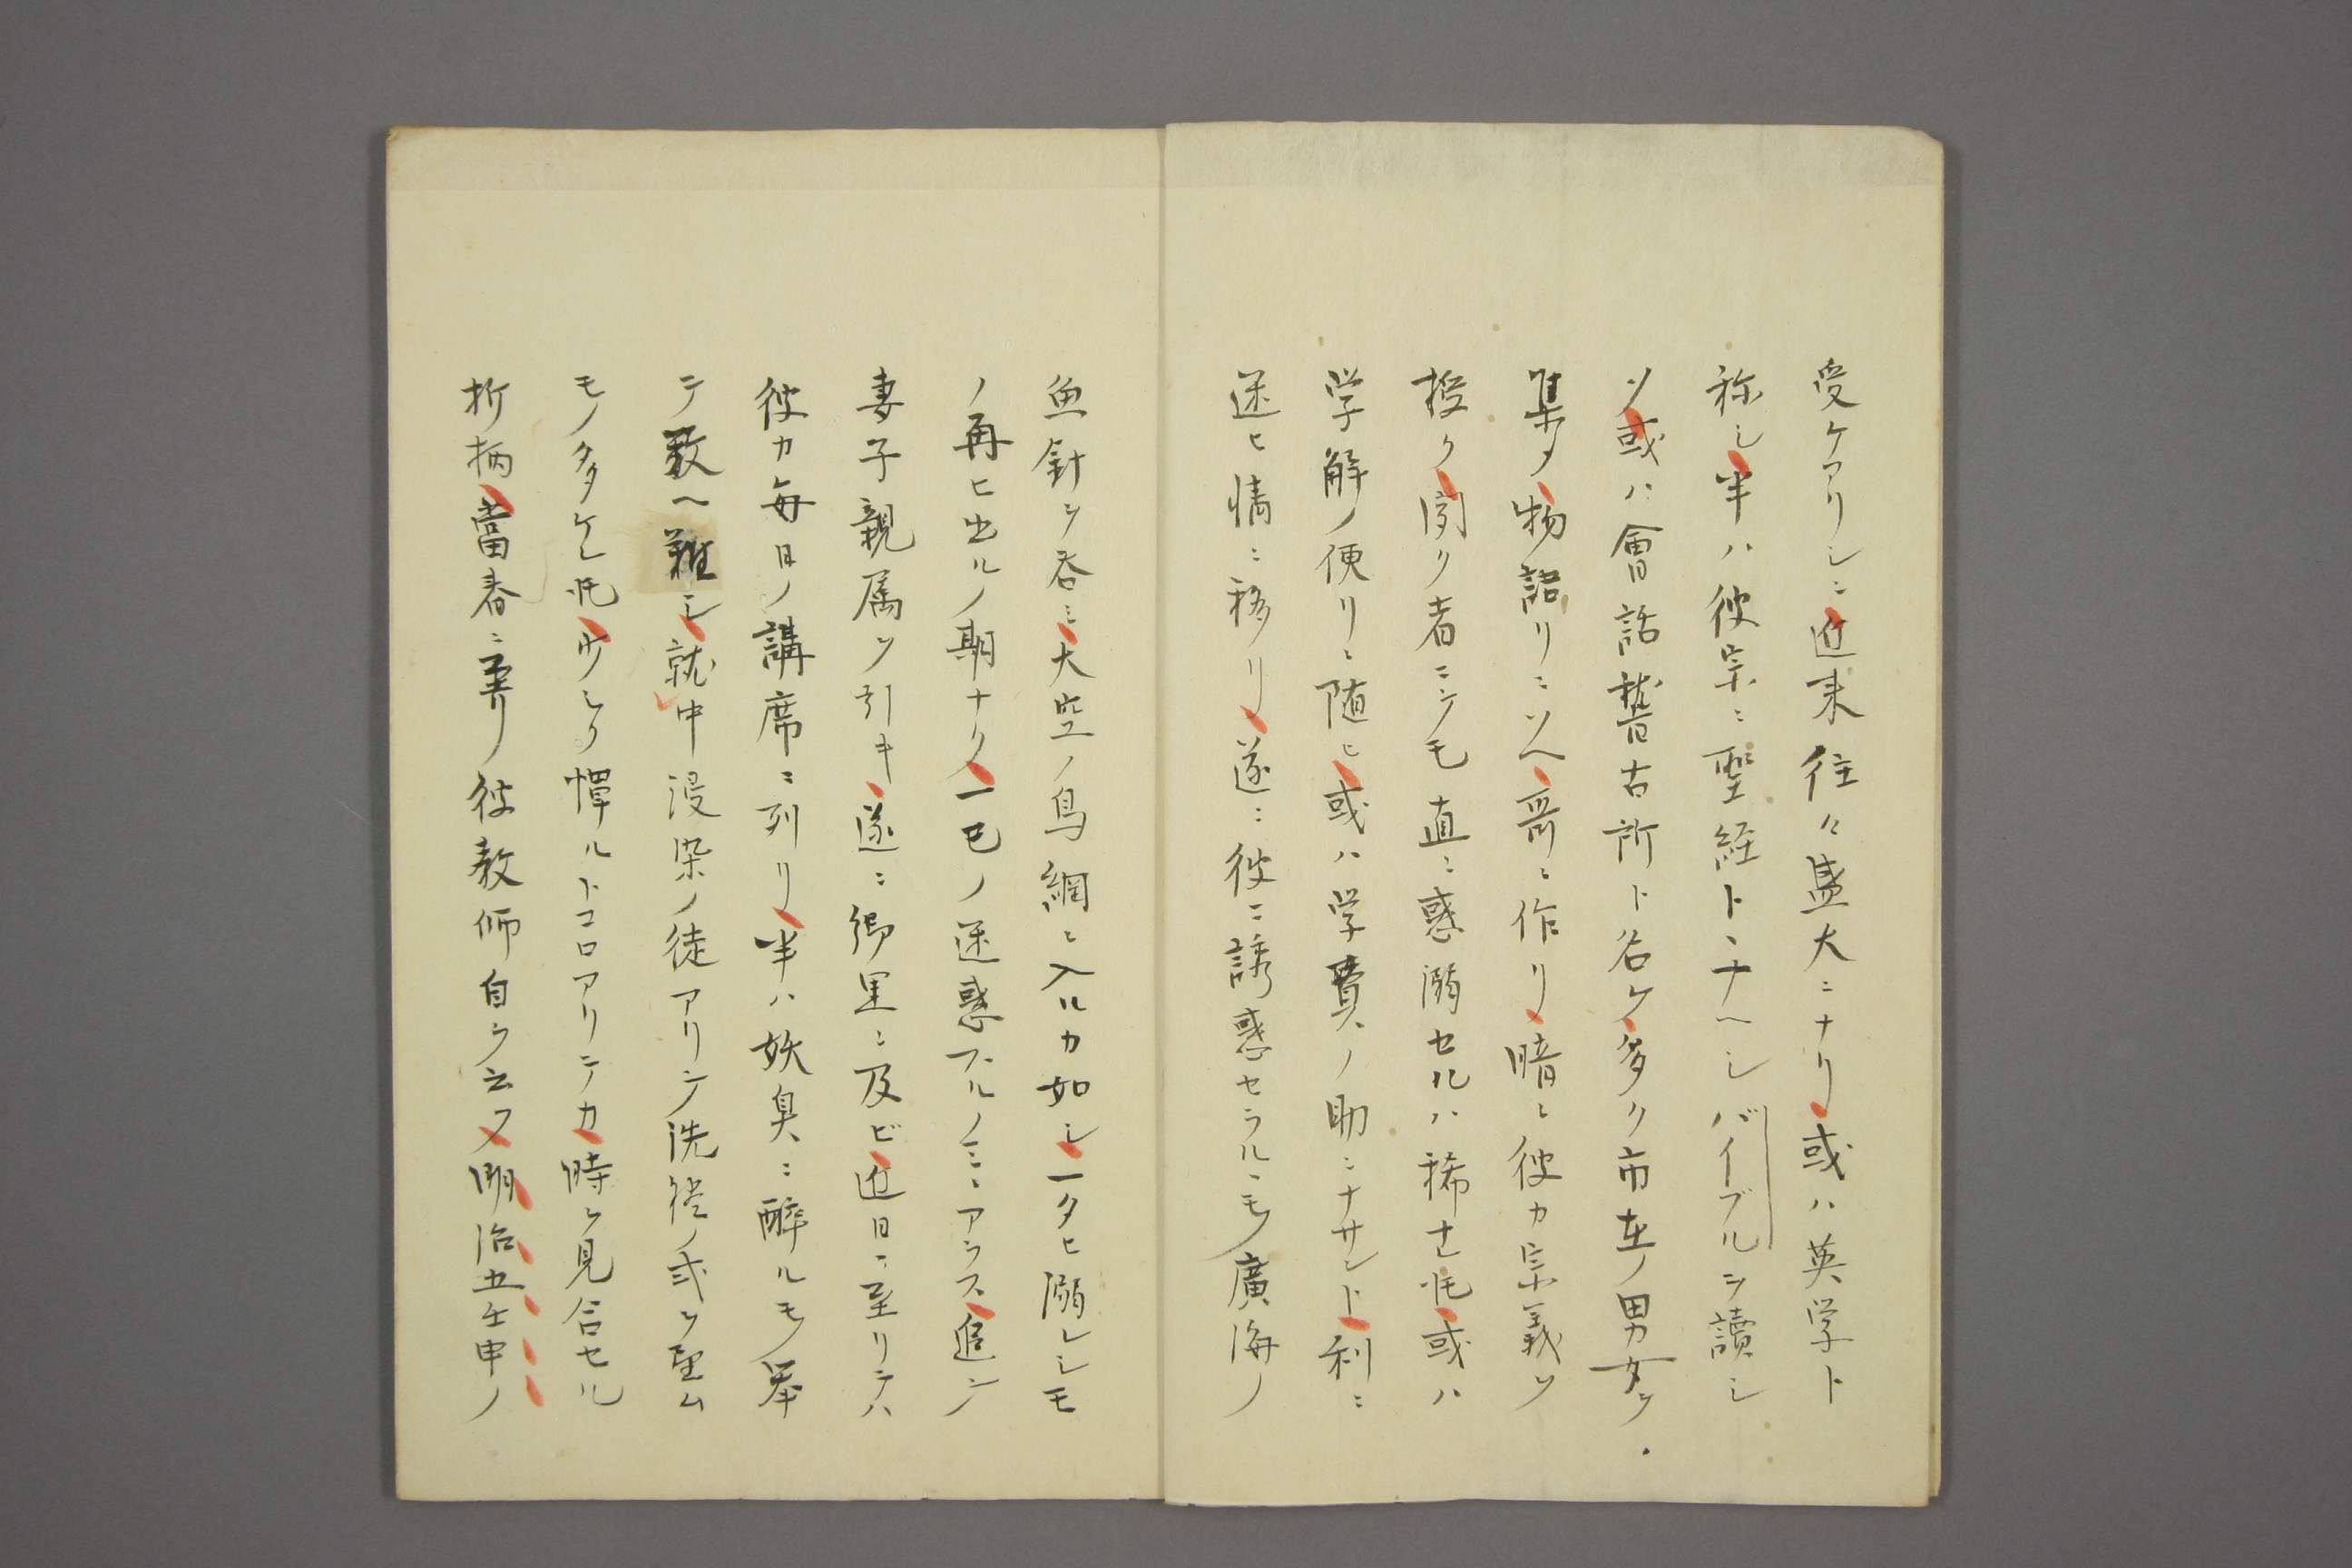 受ケアリシニ近来往々盛大ニナリ或ハ英学ト
称シ半ハ彼宗ニ聖経トヽナヘシバイブルヲ讀シ
ツ或ハ會話誓古所ト名ケ多ク市在ノ男女ヲ
集メ物語リニソヘ哥ニ作リ暗ニ彼カ宗義ヲ
授ク関リ者ニシモ直ニ惑溺セルハ稀ナレ𪜈或ハ
学解ノ便リニ随ヒ或ハ学費ノ助ニナサント利ニ
迷ヒ情ニ移リ遂ニ彼ニ誘惑セラルヽモノ廣海ノ
魚針ヲ呑ミ大空ノ鳥網ニ入ルカ如シ一タヒ溺レシモ
ノ再ヒ出ルノ期ナク一己ノ迷惑スルノミニアラス追ヒ
妻子親属ヲ引キ遂ニ郷里ニ及ビ近日ニ至リテハ
彼カ毎日ノ講席ニ列リ半ハ妖臭ニ酔ルモノ挙
テ数ヘ難シ就中浸染ノ徒アリテ洗礼ノ式ヲ望ム
モノ多ケレ𪜈少シク憚ルトコロアリテカ時ヲ見合セル
折柄當春ニ至リ彼教師自ラ云フ明治五壬申ノ